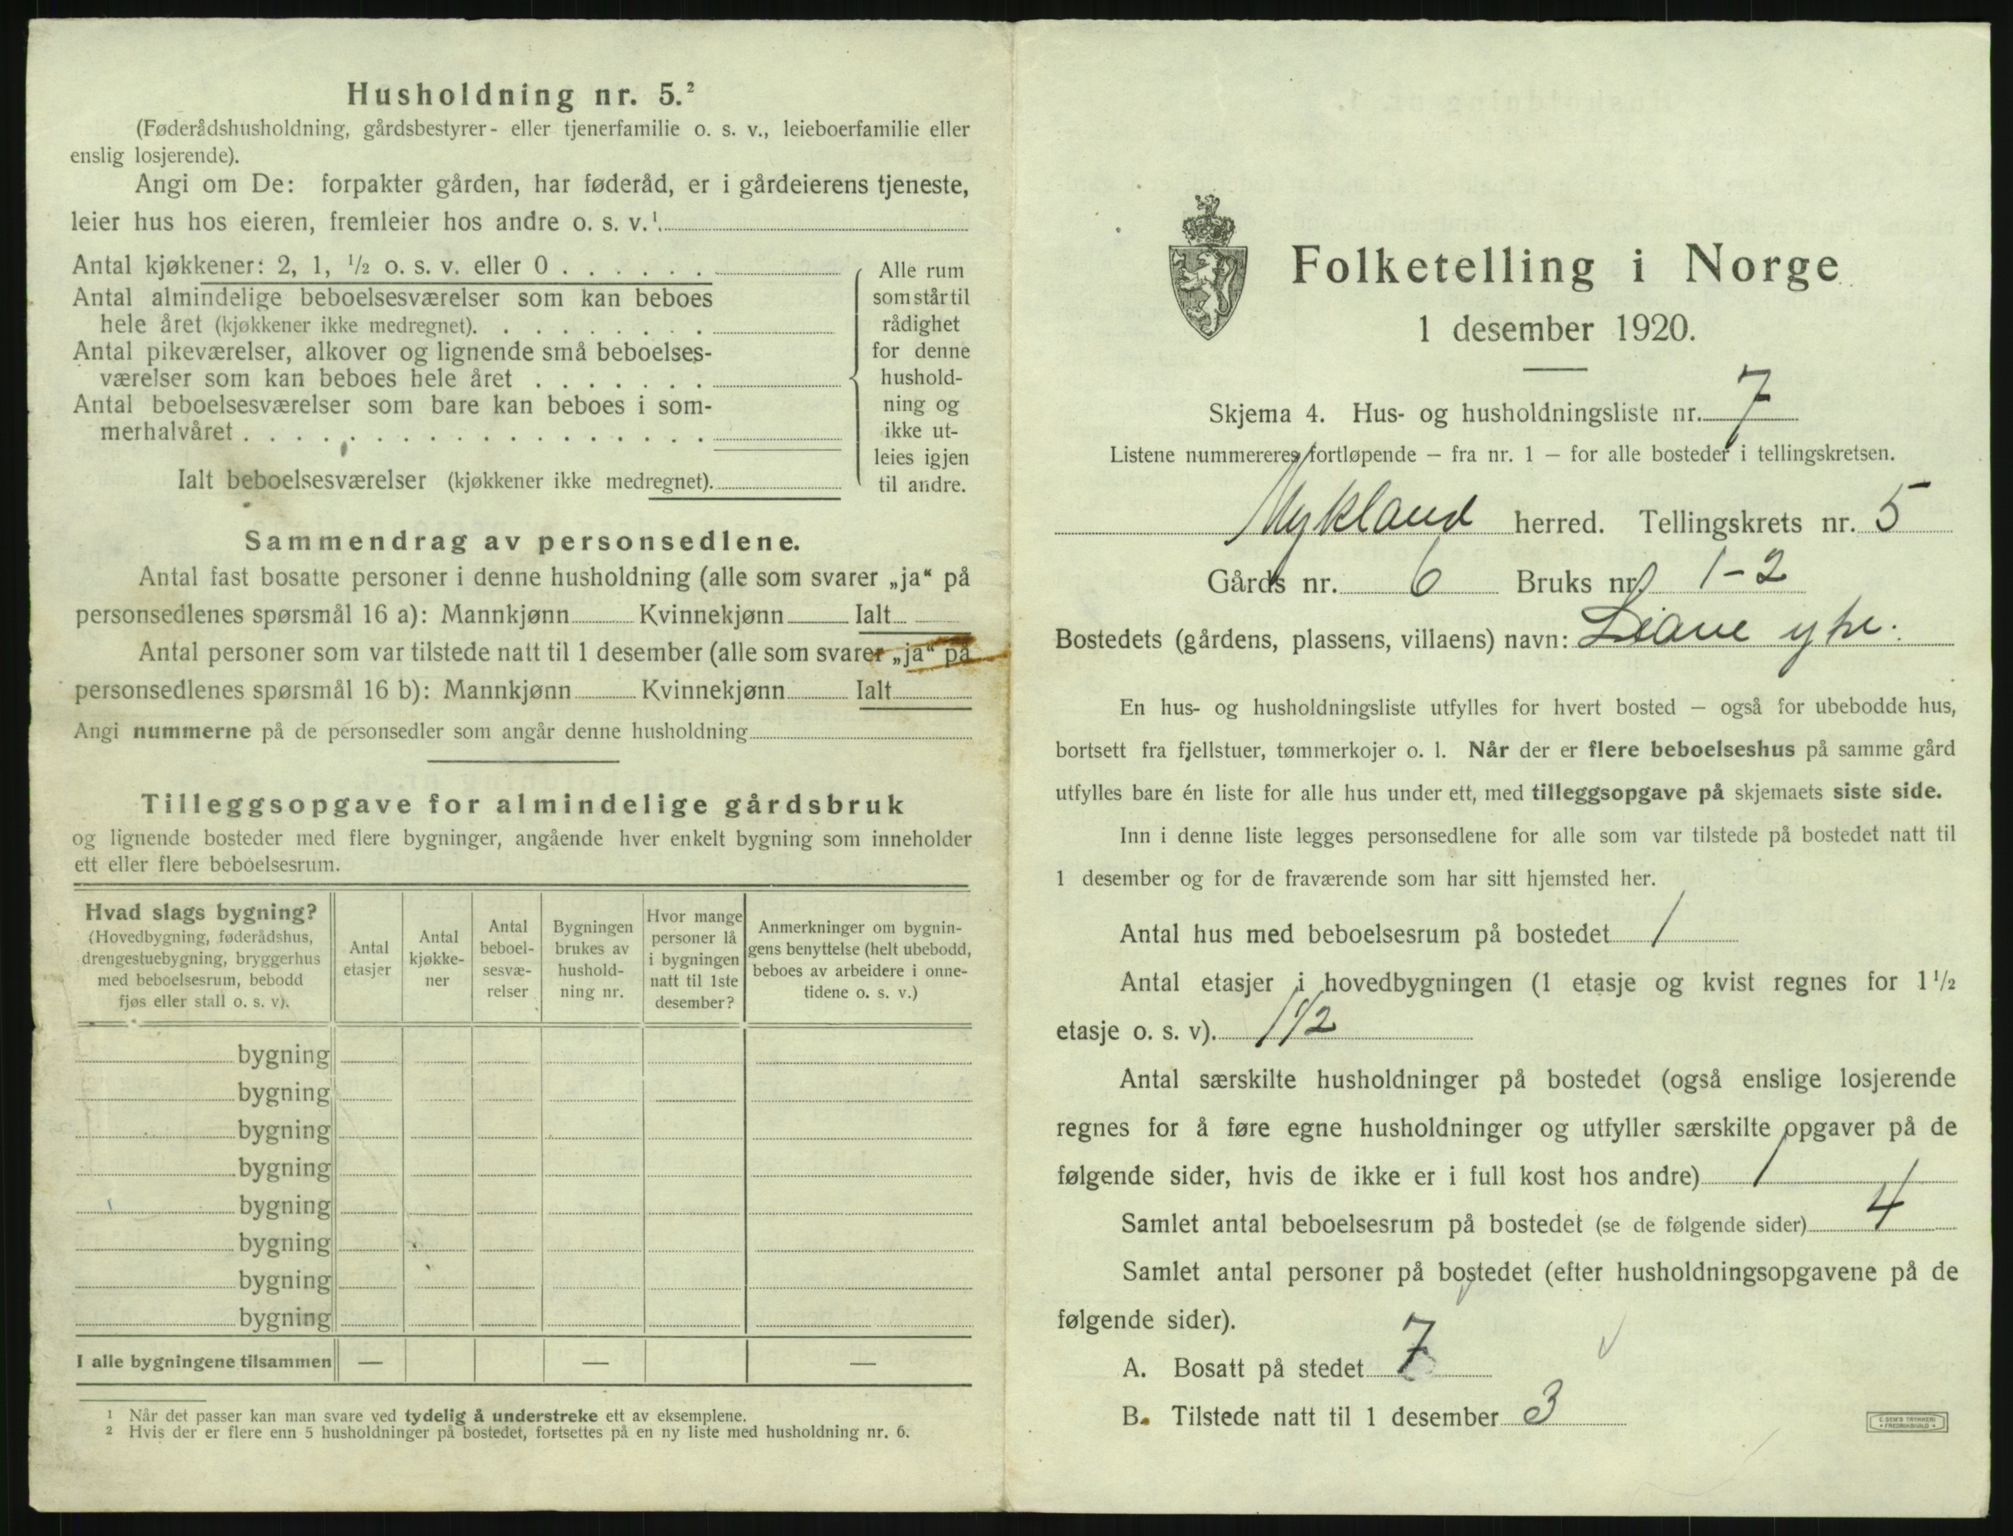 Husholdning nr. 5.²
(Føderådshusholdning, gårdsbestyrer- eller tjenerfamilie o. s. v., leieboerfamilie eller
enslig losjerende).
Angi om De: forpakter gården, har føderåd, er i gårdeierens tjeneste,
leier hus hos eieren, fremleier hos andre o. s. v.¹
Antal kjøkkener: 2, 1, ½ o. s. v. eller 0 . . . . . .
Antal almindelige beboelsesværelser som kan beboes
hele året (kjøkkener ikke medregnet). . . . . . . . .
Antal pikeværelser, alkover og lignende små beboelses-
værelser som kan beboes hele året . . . . . . .
Antal beboelsesværelser som bare kan beboes i som-
merhalvåret . . . . . . . . . . . . . . . . . .
Ialt beboelsesværelser (kjøkkener ikke medregnet).
Alle rum
som står til
rådighet
for denne
hushold-
ning og
ikke ut-
leies igjen
til andre.
Sammendrag av personsedlene.
Antal fast bosatte personer i denne husholdning (alle som svarer „ja“ på
personsedlenes spørsmål 16 a): Mannkjønn Kvinnekjønn Ialt
Antal personer som var tilstede natt til 1 desember (alle som svarer „ja“ på
personsedlenes spørsmål 16 b): Mannkjønn Kvinnekjønn Ialt
Angi nummerne på de personsedler som angår denne husholdning
Tilleggsopgave for almindelige gårdsbruk
og lignende bosteder med flere bygninger, angående hver enkelt bygning som inneholder
ett eller flere beboelsesrum.
Hvad slags bygning?
(Hovedbygning, føderådshus,
drengestuebygning, bryggerhus
med beboelsesrum, bebodd
fjøs eller stall o. s. v).
Antal
etasjer
Antal
kjøkke-
ner
Antal
beboel-
sesvæ-
relser
Bygningen
brukes av
hushold-
ning nr.
Hvor mange
personer lå
i bygningen
natt til 1ste
desember?
Anmerkninger om bygnin-
gens benyttelse (helt ubebodd,
beboes av arbeidere i onne-
tidene o. s. v.)
bygning
bygning
bygning
bygning
bygning
bygning
bygning
bygning
I alle bygningene tilsammen — — —
¹ Når det passer kan man svare ved tydelig å understreke ett av eksemplene.
² Hvis der er flere enn 5 husholdninger på bostedet, fortsettes på en ny liste med husholdning nr. 6.
Folketelling i Norge
1 desember 1920.
Skjema 4. Hus- og husholdningsliste nr. 7
Listene nummereres fortløpende — fra nr. 1 — for alle bosteder i tellingskretsen.
Mykland herred. Tellingskrets nr. 5
Gårds nr. 6 Bruks nr. 1-2
Bostedets (gårdens, plassens, villaens) navn: Liane ytre.
En hus- og husholdningsliste utfylles for hvert bosted — også for ubebodde hus,
bortsett fra fjellstuer, tømmerkojer o. l. Når der er flere beboelseshus på samme gård
utfylles bare én liste for alle hus under ett, med tilleggsopgave på skjemaets siste side.
Inn i denne liste legges personsedlene for alle som var tilstede på bostedet natt til
1 desember og for de fraværende som har sitt hjemsted her.
Antal hus med beboelsesrum på bostedet 1
Antal etasjer i hovedbygningen (1 etasje og kvist regnes for 1½
etasje o. s. v). 1½
Antal særskilte husholdninger på bostedet (også enslige losjerende
regnes for å føre egne husholdninger og utfyller særskilte opgaver på de
følgende sider, hvis de ikke er i full kost hos andre) 1
Samlet antal beboelsesrum på bostedet (se de følgende sider) 4
Samlet antal personer på bostedet (efter husholdningsopgavene på de
følgende sider).
A. Bosatt på stedet 7
B. Tilstede natt til 1 desember 3